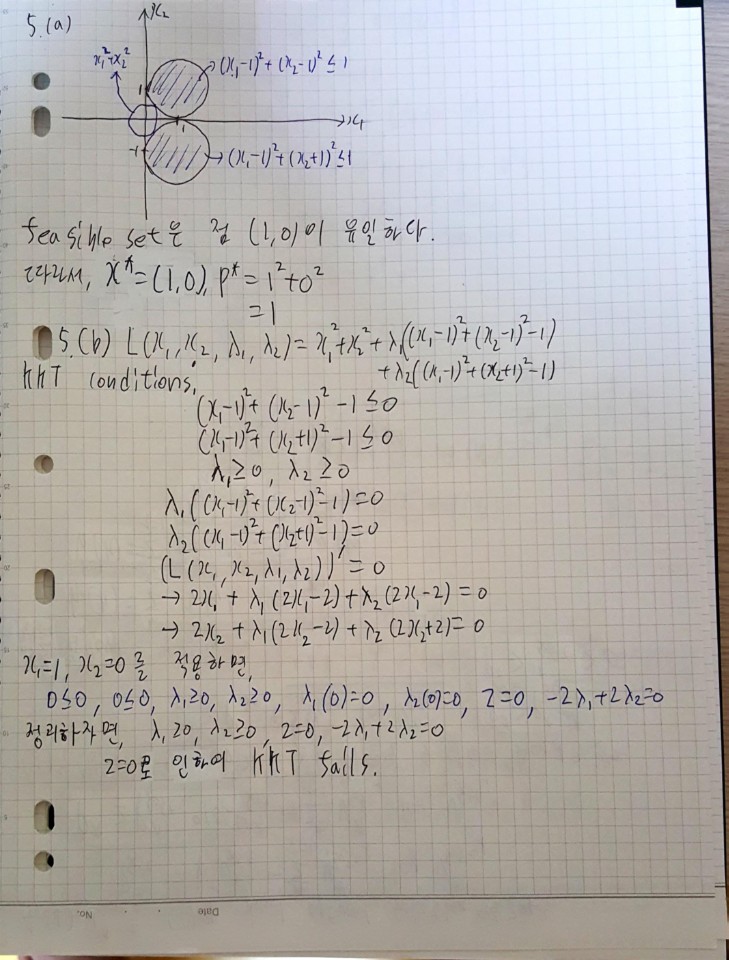 5.(a)
x₂
x₁²+x₂²
(x₁-1)²+(x₂-1)² ≤ 1
1
1
x₁
-1
(x₁-1)²+(x₂+1)² ≤ 1
feasible set은 점 (1,0)이 유일하다.
따라서, x*=(1,0), p*=1²+0²
=1
5.(b) L(x₁, x₂, λ₁, λ₂)=x₁²+x₂²+λ₁((x₁-1)²+(x₂-1)²-1)
+λ₂((x₁-1)²+(x₂+1)²-1)
KKT conditions,
(x₁-1)²+(x₂-1)²-1≤0
(x₁-1)²+(x₂+1)²-1≤0
λ₁≥0, λ₂≥0
λ₁((x₁-1)²+(x₂-1)²-1)=0
λ₂((x₁-1)²+(x₂+1)²-1)=0
(L(x₁, x₂, λ₁, λ₂))'=0
→ 2x₁+λ₁(2x₁-2)+λ₂(2x₁-2)=0
→ 2x₂+λ₁(2x₂-2)+λ₂(2x₂+2)=0
x₁=1, x₂=0를 적용하면,
0≤0, 0≤0, λ₁≥0, λ₂≥0, λ₁(0)=0, λ₂(0)=0, 2=0, -2λ₁+2λ₂=0
정리하자면, λ₁≥0, λ₂≥0, 2=0, -2λ₁+2λ₂=0
2=0로 인하여 KKT fails.
No. Date